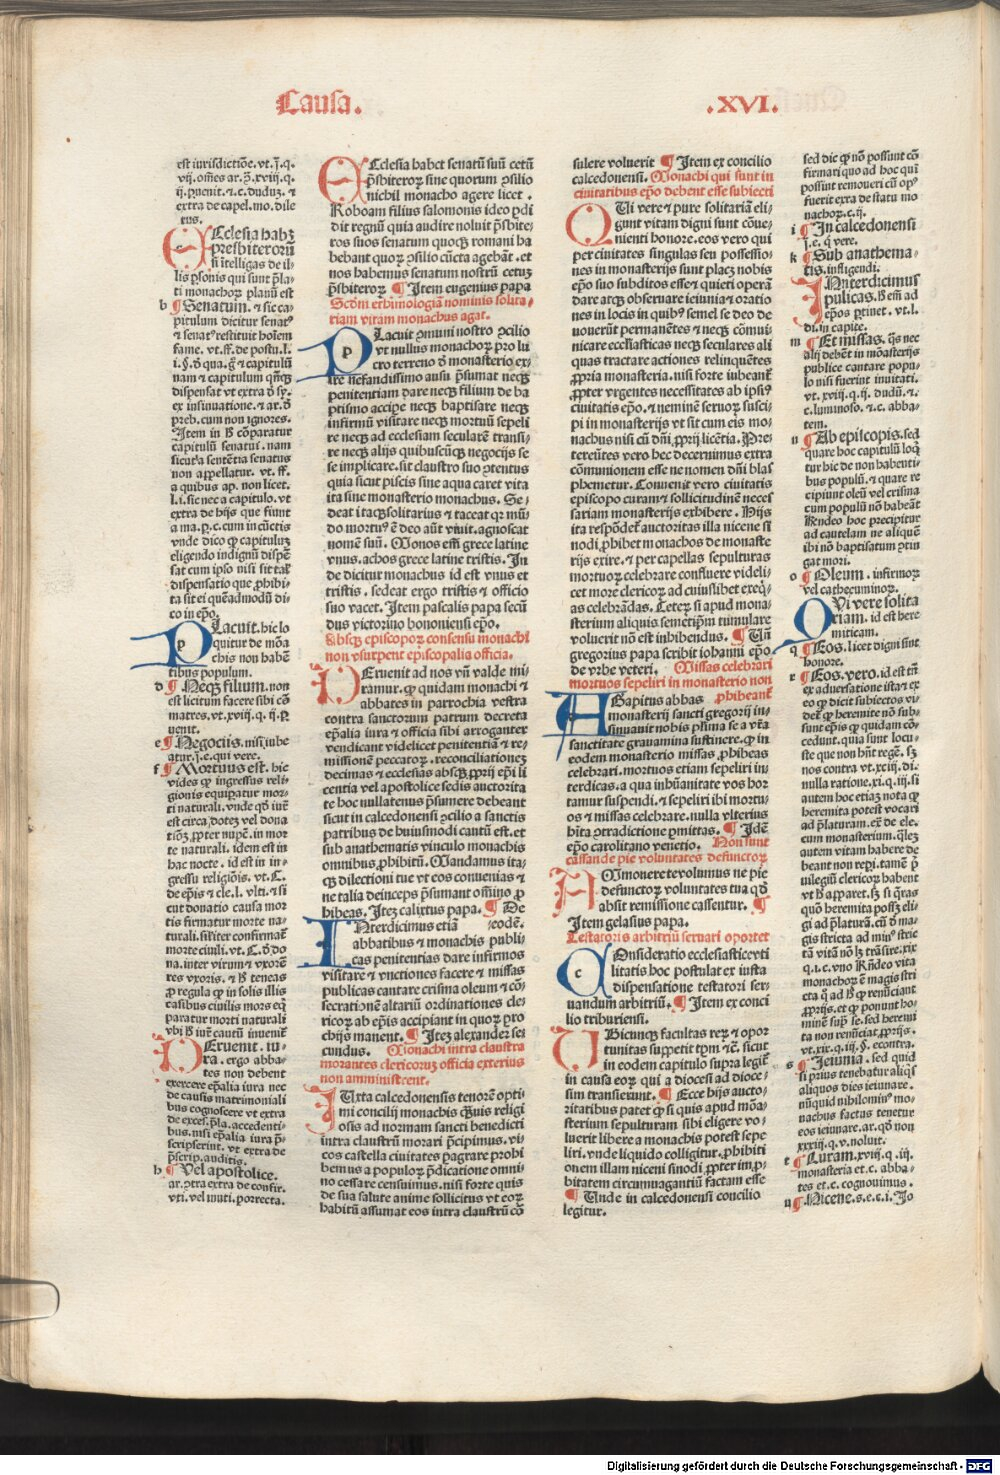 Causa. .XVI.
est iurisdictiōe. vt. ī. q.
Ecclesia habꝫ
presbiterorū
b ¶ Senatum. ⁊ sic ca-
pitulum dicitur senatꝰ
dispensat vt extra ꝺ̄ sy.
ex insinuatione. ⁊ ar. ꝺ̄
preb. cum non ignores.
Item in h̄ cōparatur
capitulū senatui. nam
sicut a sentētia senatus
non appellatur. vt. ff.
a quibus ap. non licet.
l. i. sic nec a capitulo. vt
extra de hijs que fiunt
a ma. p. c. cum in cūctis
vnde dico ꝙ capituluꝫ
eligendo indignū dispē
sat cum ipso nisi sit tal'
dispensatio que ꝓhibi-
ta sit ei quēadmodū di-
co in ep̄o.
Placuit. hic lo
quitur de mōa
chis non habē
tibus populum.
d ¶ Neqꝫ filium. non
est licitum facere sibi cō
matres. vt. xviij. q. ij. ꝑ
uenit.
e ¶ Negociis. nisi iube
atur. j. e. qui vere.
f ¶ Mortuus est. hic
vides ꝙ ingressus reli
gionis equiparatur mor-
ti naturali. vnde qꝺ̄ iuꝭ
est circa dotez vel dona
tiōꝫ ꝓpter nupē. in mor
te naturali. idem est in
hac nocte. id est in in-
gressu religiōis. vt. C.
de ep̄is ⁊ cle. l. vlti. ⁊ si
cut donatio causa mor
tis firmatur morte na-
turali. similiter confirmat̄
morte ciuili. vt. C. ꝺ̄ do
na. inter virum ⁊ vxorē
Peruenit. iu-
ra. ergo abba-
tes non debent
exercere ep̄alia iura nec
de causis matrimoniali
bus cognoscere vt extra
h ¶ Vel apostolice.
ar. ꝯtra extra de confir.
vti. vel inuti. porrecta.
Ecclesia habet senatū suū cetū
p̄sbiteroꝝ sine quorum ꝯsilio
nichil monacho agere licet.
Roboam filius salomonis ideo ꝑdi
dit regnū quia audire noluit p̄sbite-
ros suos senatum quoqꝫ romani ha
bebant quoꝝ ꝯsilio cūcta agebāt. et
nos habemus senatum nostrū cetuꝫ
p̄sbiteroꝝ ¶ Item eugenius papa
Scdm ethimologiā nominis solita-
riam vitam monachus agat.
Placuit ꝯmuni nostro ꝯcilio
vt nullus monachoꝝ pro lu
cro terreno ꝺ̄ monasterio ex-
ire nefandissimo ausu p̄sumat neqꝫ
penitentiam dare neqꝫ filium de ba
ptismo accipe neqꝫ baptisare neqꝫ
infirmū visitare neqꝫ mortuū sepeli
re neqꝫ ad ecclesiam secularē transi-
re neqꝫ alijs quibuscūqꝫ negocijs se
se implicare. sit claustro suo ꝯtentus
quia sicut piscis sine aqua caret vita
ita sine monasterio monachus. Se-
deat itaqꝫ solitarius ⁊ taceat qꝛ mū-
do mortuꝰ ē deo aūt viuit. agnoscat
nomē suū. Monos em̄ grece latine
vnus. achos grece latine tristis. In
de dicitur monachus id est vnus et
tristis. sedeat ergo tristis ⁊ officio
suo vacet. Item pascalis papa secū
dus victorino bononiensi ep̄o.
Absqꝫ episcoporꝫ consensu monachi
non vsurpent episcopalia officia.
Peruenit ad nos vn̄ valde mi
ramur. ꝙ quidam monachi ⁊
abbates in parrochia vestra
contra sanctorum patrum decreta
ep̄alia iura ⁊ officia sibi arroganter
vendicant videlicet penitentiā ⁊ re-
missionē peccatoꝝ. reconciliationeꝫ
decimas ⁊ ecclesias absqꝫ ꝓprij ep̄i li
centia vel apostolice sedis auctorita
te hoc nullatenus p̄sumere debeant
sicut in calcedonēsi ꝯcilio a sanctis
patribus de huiusmodi cautū est. et
sub anathematis vinculo monachis
omnibus ꝓhibitū. Mandamus ita-
qꝫ dilectioni tue vt eos conuenias ⁊
ne talia deinceps p̄sumant om̄ino ꝓ
hibeas. Iteꝫ calixtus papa. ¶ De
Interdicimus etiā eodē.
abbatibus ⁊ monachis publi-
cas penitentias dare infirmos
visitare ⁊ vnctiones facere ⁊ missas
publicas cantare crisma oleum ⁊ cō
secrationē altariū ordinationes cle
ricoꝝ ab ep̄is accipiant in quoꝝ pro
chijs manent. ¶ Iteꝫ alexander se
cundus. Monachi intra claustra
morantes clericoruꝫ officia exterius
non amministrent.
Iuxta calcedonensis tenorē opti
mi concilij monachis q̄uis religi
osis ad normam sancti benedicti
intra claustrū morari p̄cipimus. vi-
cos castella ciuitates ꝑagrare prohi
bemus a populoꝝ p̄dicatione omni
no cessare censuimus. nisi forte quis
de sua salute anime sollicitus vt eoꝝ
habitū assumat eos intra claustrū cō
sulere voluerit ¶ Item ex concilio
calcedonensi. Monachi qui sunt in
ciuitatibus ep̄o debent esse subiecti
Qui vere ⁊ pure solitariā eli-
gunt vitam digni sunt cōue-
nienti honore. eos vero qui
per ciuitates singulas seu possessio-
nes in monasterijs sunt placꝫ nobis
ep̄o suo subditos esse ⁊ quieti operā
dare atqꝫ obseruare ieiunia ⁊ oratio
nes in locis in quibꝰ semel se deo de
uouerūt permanētes ⁊ neqꝫ cōmu-
nicare eccl'iasticas neqꝫ seculares ali
quas tractare actiones relinquētes
ꝓpria monasteria. nisi forte iubeant̄
ꝓpter vrgentes necessitates ab ipsiꝰ
ciuitatis ep̄o. ⁊ neminē seruoꝝ susci-
pi in monasterijs vt sit cum eis mo-
nachus nisi cū dn̄i ꝓprij licētia. Pre-
tereūtes vero hec decernimus extra
cōmunionem esse ne nomen dn̄i blas
phemetur. Conuenit vero ciuitatis
episcopo curam ⁊ sollicitudinē neces
sariam monasterijs exhibere. Hijs
ita respōdet̄ auctoritas illa nicene si
nodi ꝓhibet monachos de monaste
rijs exire. ⁊ per capellas sepulturas
mortuoꝝ celebrare confluere videli-
cet more clericoꝝ ad cuiuslibet exeq̄-
as celebrādas. Ceteꝝ si apud mona-
sterium aliquis semetip̄m tumulare
voluerit nō est inhibendus. ¶ Un̄
gregorius papa scribit iohanni ep̄o
de vrbe veteri. Missas celebrari
mortuos sepeliri in monasterio non
Agapitus abbas ꝓhibeant̄
monasterij sancti gregorij in-
sinuauit nobis plīma se a vr̄a
sanctitate grauamina sustinere. ꝙ in
eodem monasterio missas ꝓhibeas
celebrari. mortuos etiam sepeliri in-
terdicas. a qua inhūanitate vos hor
tamur suspendi. ⁊ sepeliri ibi mortu-
os ⁊ missas celebrare. nulla vlterius
hita ꝯtradictione ꝑmittas. ¶ Idē
ep̄o carolitano venetio. Non sunt
cassande pie voluntates defunctoꝝ
Monere te volumus ne pie
defunctoꝝ voluntates tua qꝺ̄
absit remissione cassentur. ¶
Item gelasius papa.
Testatoris arbitriū seruari oportet
Consideratio ecclesiasticevti
litatis hoc postulat ex iusta
dispensatione testatori ser-
uandum arbitriū. ¶ Item ex conci
lio triburiensi.
Ubicunqꝫ facultas reꝝ ⁊ opor
tunitas suppetit tp̄m ⁊c̄. sicut
in eodem capitulo supra legit̄
in causa eoꝝ qui a diocesi ad dioce-
sim transeunt. ¶ Ecce hijs aucto-
ritatibus patet ꝙ si quis apud mōa-
sterium sepulturam sibi eligere vo-
luerit libere a monachis potest sepe
liri. vnde liquido colligitur. ꝓhibiti
onem illam niceni sinodi ꝓpter im ꝓ-
bitatem circumuagantiū factam esse
¶ Unde in calcedonensi concilio
legitur.
sed dic ꝙ nō possunt cō
firmari quo ad hoc qui
possint remoueri cū opꝰ
fuerit extra de statu mo
nachoꝝ. c. ij.
i ¶ In calcedonensi
j. e. q̄ vere.
k ¶ Sub anathema-
tis. infligendi.
Interdicimus
publicas. h̄ em̄ ad
ep̄os ꝑtinet. vt. l.
di. in capite.
m ¶ Et missas. q̄s nec
alij debēt in mōasterijs
publice cantare popu-
lo nisi fuerint inuitati.
vt. xviij. q. ij. dudū. ⁊.
c. luminoso. ⁊. c. abba-
tem.
n ¶ Ab episcopis. sed
quare hoc capitulū loq̄
tur hic de non habenti-
bus populū. ⁊ quare re
cipiunt oleū vel crisma
cum populū nō habeāt
Rn̄deo hoc precipitur
ad cautelam ne aliquē
ibi nō baptisatum ꝯtin
gat mori.
o ¶ Oleum. infirmoꝝ
vel cathecuminoꝝ.
Qui vere solita
riam. id est here
miticam.
q ¶ Eos. licet digni sint
honore.
r ¶ Eos. vero. id est tn̄
ex aduersatione ista ⁊ ex
eo ꝙ dicit subiectos vi-
det̄ ꝙ heremite nō sub-
sunt ep̄is ꝙ quidam cō-
cedunt. quia sunt locu-
ste que non hn̄t regē. sꝫ
nos contra vt. xciij. di-
nulla ratione. xi. q. iij. si
autem hoc etiaꝫ nota ꝙ
heremita potest vocari
ad p̄laturam. eꝉ de ele.
cum monasterium. q̄leꝫ
autem vitam habere de
beant non repi. tamē p̄
uilegiū clericoꝝ habent
s ¶ Ieiunia. sed quid
si prius tenebatur aliqꝰ
aliquos dies ieiunare.
nūquid nihilominꝰ mo-
nachus factus tenetur
eos ieiunare. ar. qꝺ̄ non
xxxiij. q. v. noluit.
t ¶ Curam. xviij. q. ij.
monasteria et. c. abba-
tes et. c. cognouimus.
u ¶ Nicene. s. e. c. i. Jo
Digitalisierung gefördert durch die Deutsche Forschungsgemeinschaft - DFG